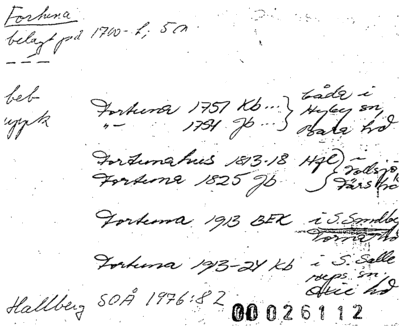 Fortuna
belagt på 1700-t; 5 m
beb Fortuna 1751 Kb... } båda i
uppk -"- 1754 Jb... } Hyby sn, Bara hd
Fortunahus 1813-18 Hfl
Fortuna 1825 Jb } Färs hd
Fortuna 1913 BEK i S. Sandby
Torna hd
Fortuna 1913-24 Kb i S. Salle
rups sn, Oxie hd
Hallberg SOÅ 1976:82
00026112